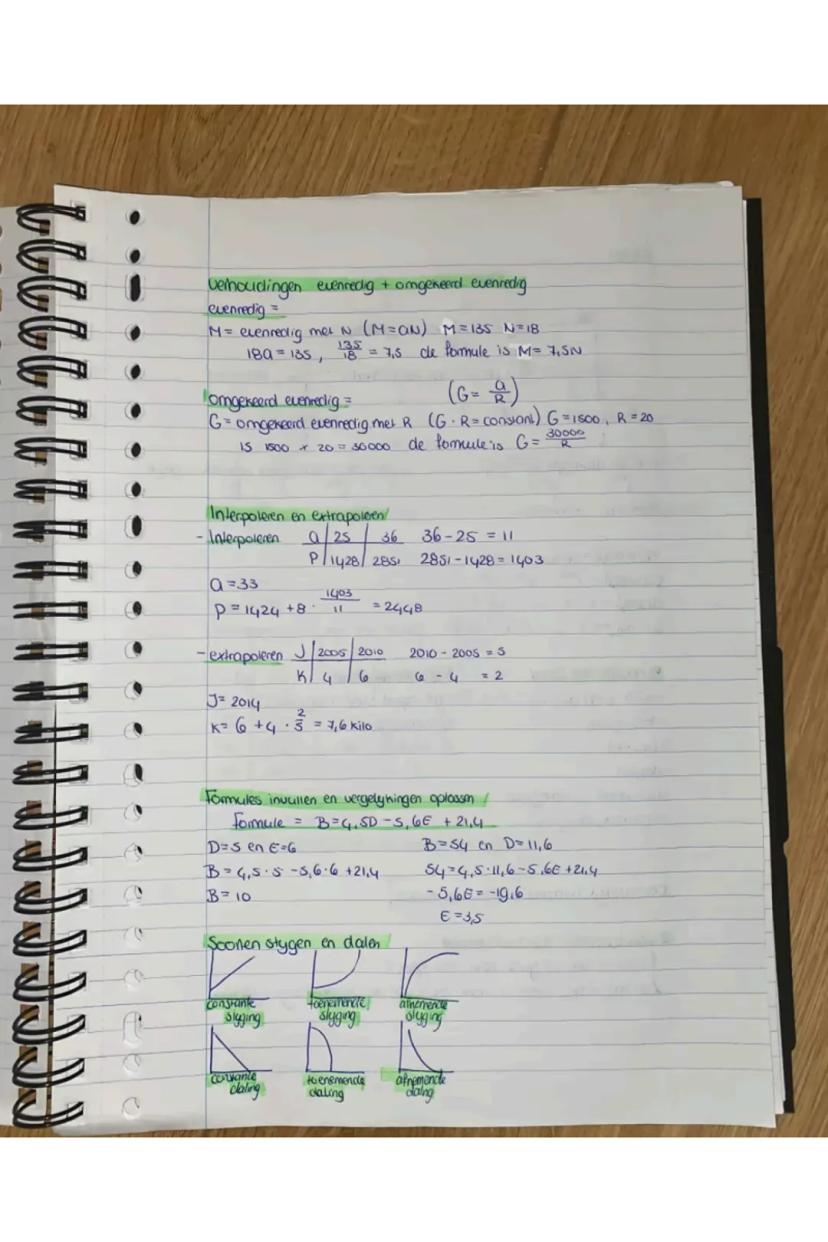 Verhoudingen evenredig + omgekeerd evenredig
evenredig =
M = evenredig met N (M=aN) M=135 N=18
18a = 135, 135/18 = 7,5 de formule is M= 7,5N
omgekeerd evenredig = (G= a/R)
G= omgekeerd evenredig met R (G · R = constant) G=1500, R=20
is 1500 x 20 = 30000 de formule is G= 30000/R
Interpoleren en extrapoleren
- Interpoleren a | 25 | 36 36-25 = 11
P | 1428 | 2851 2851-1428 = 1403
a = 33
P = 1424 + 8 · 1403/11 = 2448
- extrapoleren J | 2005 | 2010 2010 - 2005 = 5
K | 4 | 6 6 - 4 = 2
J= 2014
K= 6 + 4 · 2/5 = 7,6 kilo
Formules invullen en vergelijkingen oplossen
Formule = B=4,5D - 5,6E + 21,4
D=5 en E=6 B=54 en D=11,6
B = 4,5·5 - 5,6·6 + 21,4 54=4,5·11,6-5,6E+21,4
B= 10 -5,6E = -19,6
E = 3,5
Soorten stijgen en dalen
constante stijging toenemende stijging afnemende stijging
constante daling toenemende daling afnemende daling